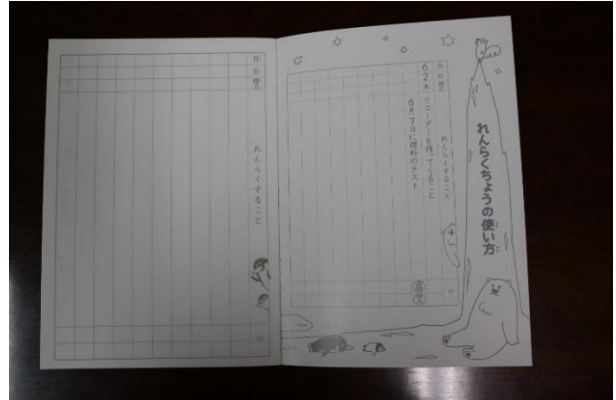 れんらくちょうの使い方
月 日 曜 れんらくすること
6 2 木 リコーダーを持ってくること
6月7日に理科のテスト
月 日 曜 れんらくすること